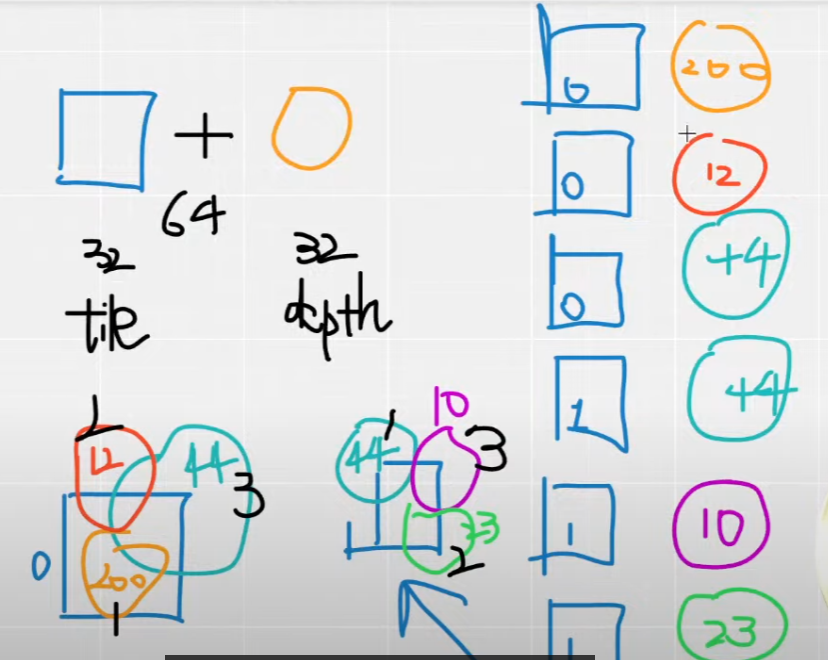 +
64
32
tile
32
depth
1
12
44
3
0
200
1
1
44
10
3
23
2
0
200
0
12
0
+4
1
+4
1
10
1
23